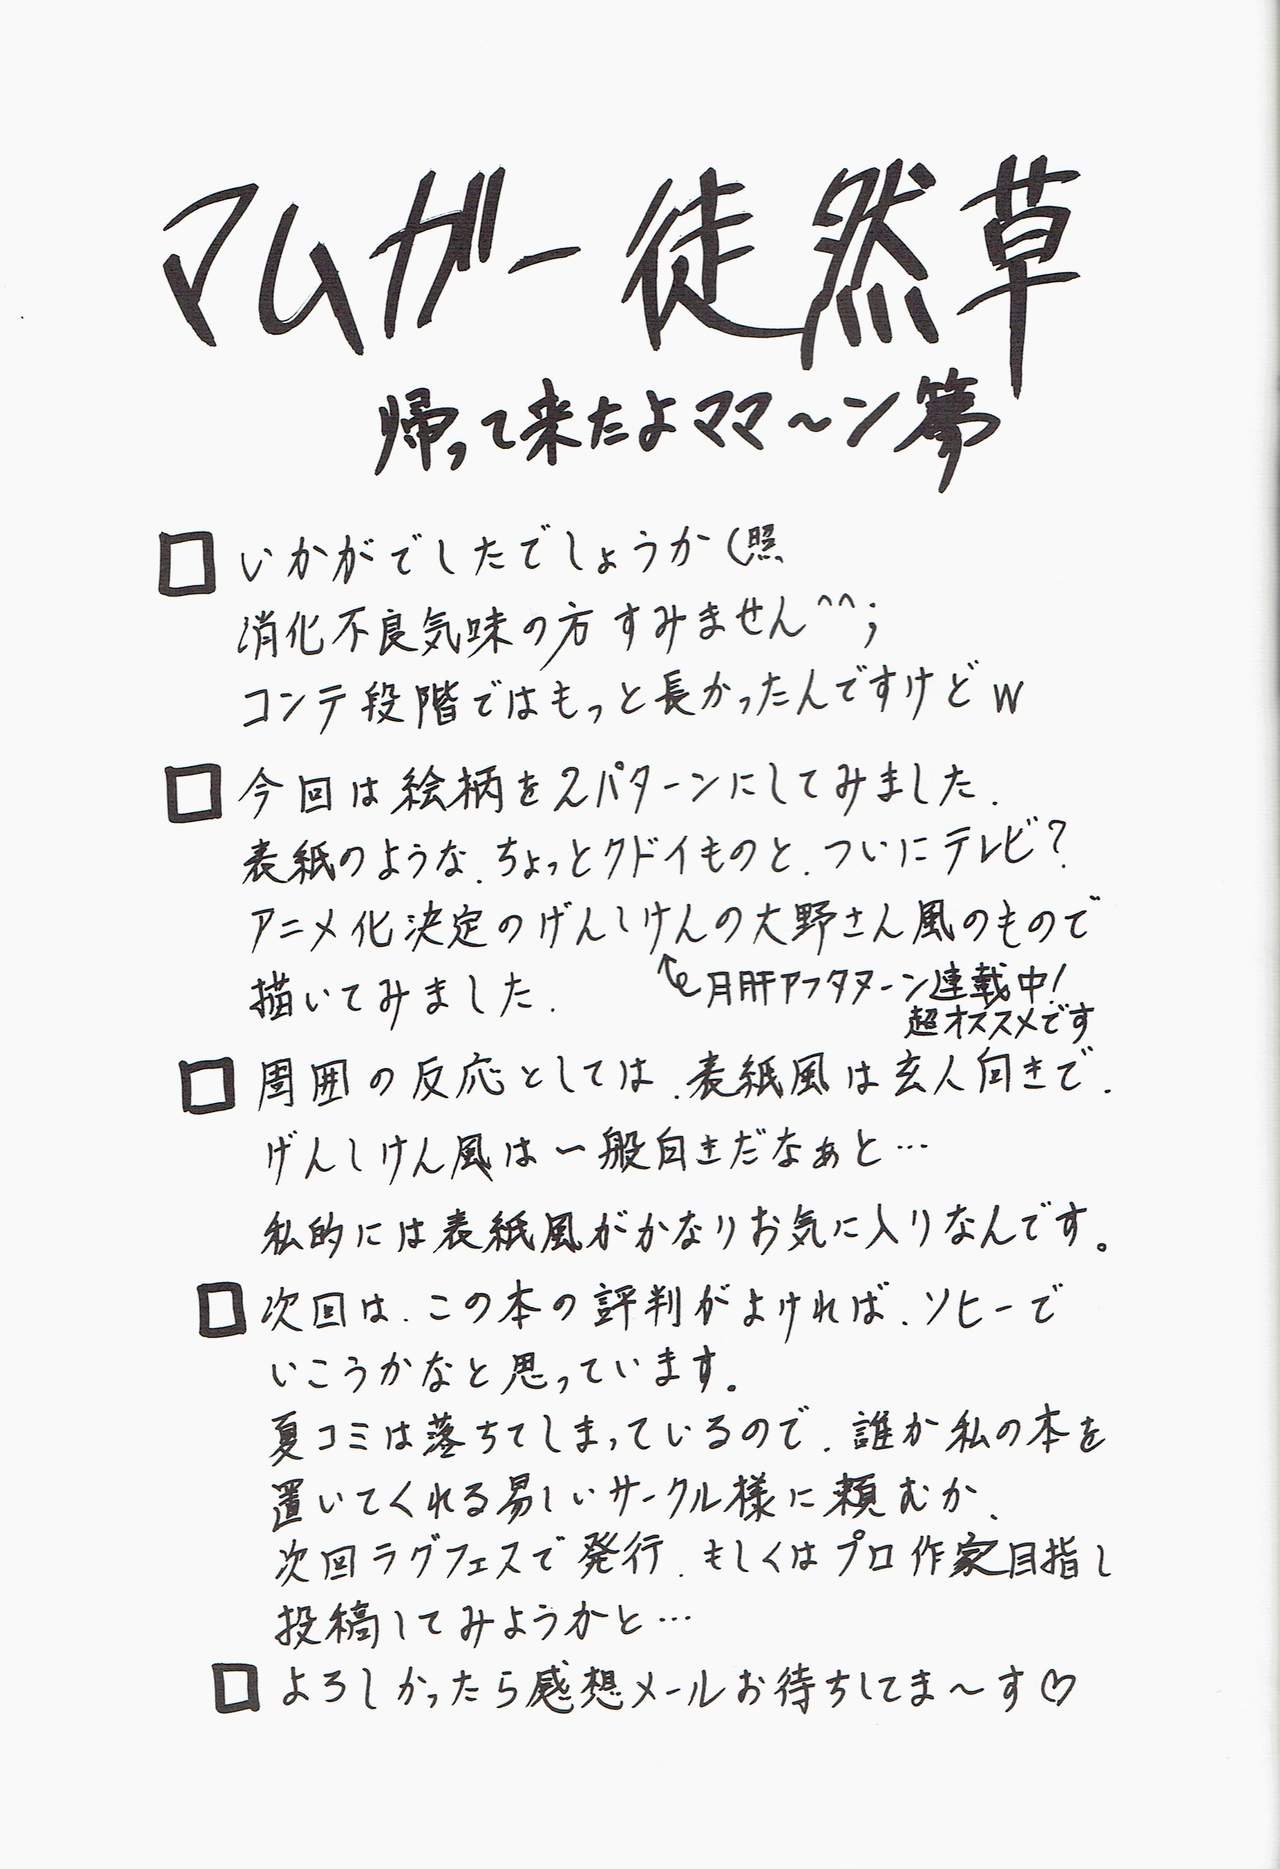 マムガー徒然草
帰って来たよママ～ン篇
□いかがでしたでしょうか(照
消化不良気味の方すみません^^;
コンテ段階ではもっと長かったんですけどw
□今回は絵柄を2パターンにしてみました.
表紙のような.ちょっとクドイものと.ついにテレビ?
アニメ化決定のげんしけんの大野さん風のもので
描いてみました.
月刊アフタヌーン連載中!
超オススメです
□周囲の反応としては.表紙風は玄人向きで.
げんしけん風は一般向きだなぁと…
私的には表紙風がかなりお気に入りなんです。
□次回は.この本の評判がよければ.ソヒーで
いこうかなと思っています。
夏コミは落ちてしまっているので.誰か私の本を
置いてくれる易しいサークル様に頼むか.
次回ラグフェスで発行.もしくはプロ作家目指し
投稿してみようかと…
□よろしかったら感想メールお待ちしてま～す♡